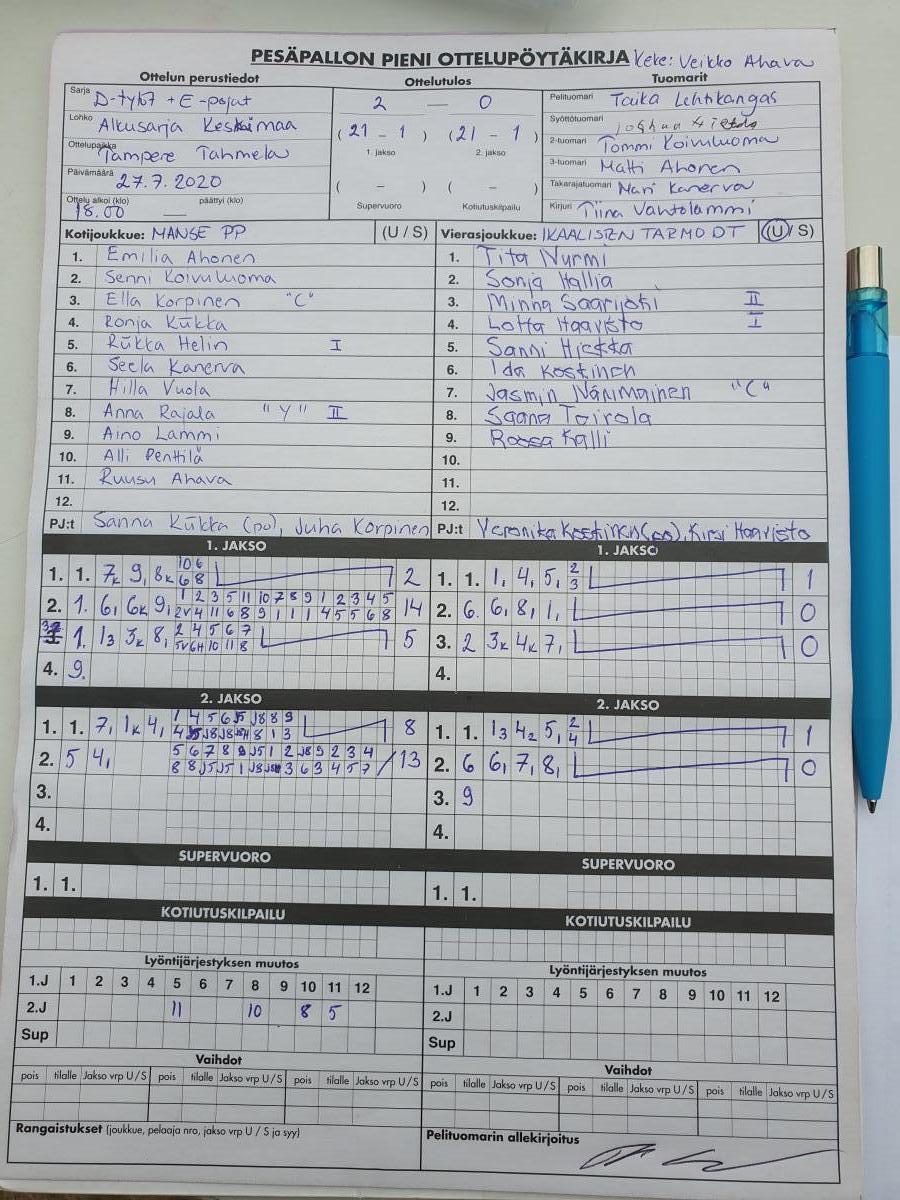 PESÄPALLON PIENI OTTELUPÖYTÄKIRJA Keke: Veikko Ahava
Ottelun perustiedot
Sarja D-tytöt + E-pojat
Lohko Alkusarja Keskimaa
Ottelupaikka Tampere Tahmela
Päivämäärä 27.7.2020
Ottelu alkoi (klo) päättyi (klo)
18.00 —
Ottelutulos
2 — 0
(21 - 1) (21 - 1)
1. jakso 2. jakso
( - ) ( - )
Supervuoro Kotiutuskilpailu
Tuomarit
Pelituomari Taika Lehtikangas
Syöttötuomari Joshua
2-tuomari Tommi Koivuluoma
3-tuomari Matti Ahonen
Takarajatuomari Mari Kanerva
Kirjuri Tiina Vahtolammi
Kotijoukkue: MANSE PP (U / S)
1. Emilia Ahonen
2. Senni Koivuluoma
3. Ella Korpinen "C"
4. Ronja Kiikka
5. Riikka Helin I
6. Seela Kanerva
7. Hilla Vuola
8. Anna Rajala "Y" II
9. Aino Lammi
10. Alli Penttilä
11. Ruusu Ahava
12.
PJ:t Sanna Kiikka (pv), Juha Korpinen
Vierasjoukkue: IKAALISTEN TARMO DT (U / S)
1. Tita Nurmi
2. Sonja Hallia
3. Minna Saarijoki II
4. Lotta Haavisto I
5. Sanni Hietta
6. Ida Koskinen
7. Jasmin Närimainen "C"
8. Saana Toirola
9. Roosa Kalli
10.
11.
12.
PJ:t Veronika Koskinen (pv), Kirsi Haavisto
1. JAKSO
1. 1. 7k 9, 8k 10 6 2
6 8
2. 1. 6, 6k 9, 1 2 3 5 11 10 7 8 9 1 2 3 4 5 14
2V 4 11 6 8 9 1 1 1 4 5 5 6 8
3. 1. 13 3k 8, 2 4 5 6 7 5
5V 6H 10 11 8
4. 9.
1. JAKSO
1. 1. 1, 4, 5, 2 1
3
2. 6. 6, 8, 1, 0
3. 2 3k 4k 7, 0
4.
2. JAKSO
1. 1. 7, 1k 4, 8
2. 5 4, 13
3.
4.
2. JAKSO
1. 1. 13 42 5, 2 1
4
2. 6 6, 7, 8, 0
3. 9
4.
SUPERVUORO
1. 1.
SUPERVUORO
1. 1.
KOTIUTUSKILPAILU
KOTIUTUSKILPAILU
Lyöntijärjestyksen muutos
1.J 1 2 3 4 5 6 7 8 9 10 11 12
2.J 11 10 8 5
Sup
Lyöntijärjestyksen muutos
1.J 1 2 3 4 5 6 7 8 9 10 11 12
2.J
Sup
Vaihdot
pois tilalle Jakso vrp U / S pois tilalle Jakso vrp U / S pois tilalle Jakso vrp U / S
Vaihdot
pois tilalle Jakso vrp U / S pois tilalle Jakso vrp U / S pois tilalle Jakso vrp U / S
Rangaistukset (joukkue, pelaaja nro, jakso vrp U / S ja syy)
Pelituomarin allekirjoitus